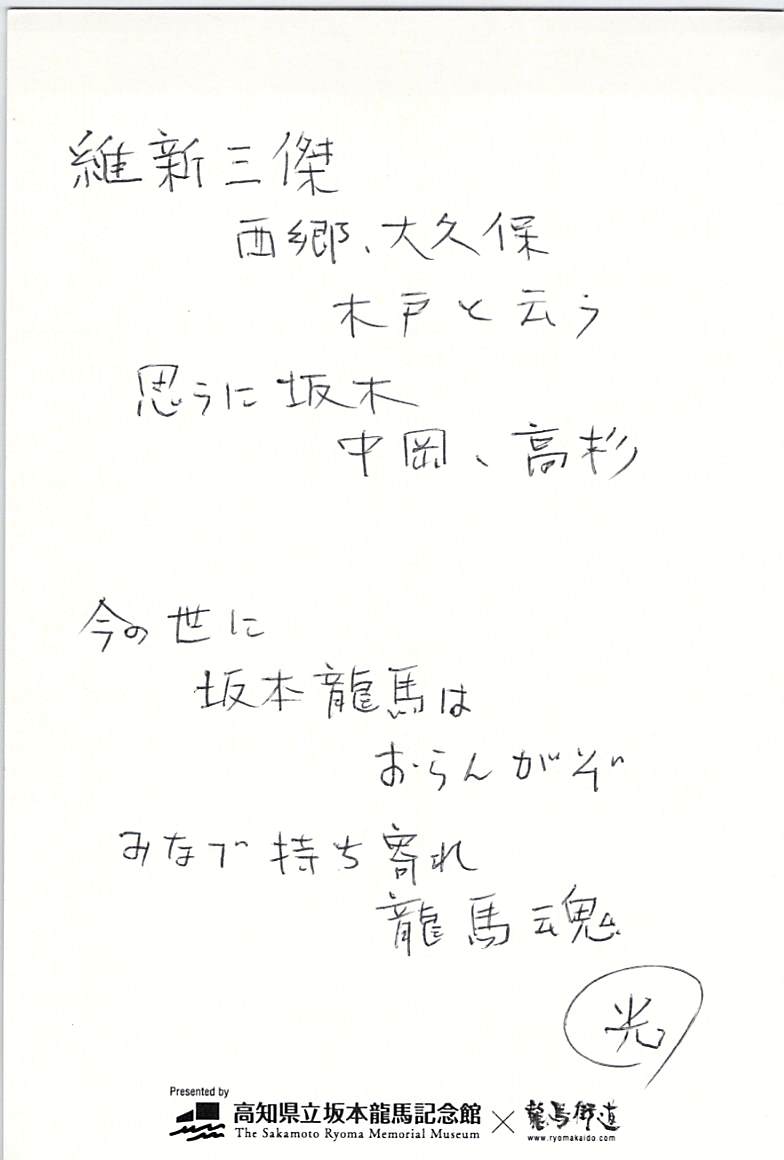 維新三傑
西郷、大久保
木戸と云う
思うに坂本
中岡、高杉
今の世に
坂本龍馬は
おらんがぞ
みなで持ち寄れ
龍馬魂
光
Presented by
高知県立坂本龍馬記念館
The Sakamoto Ryoma Memorial Museum
×
龍馬街道
www.ryomakaido.com